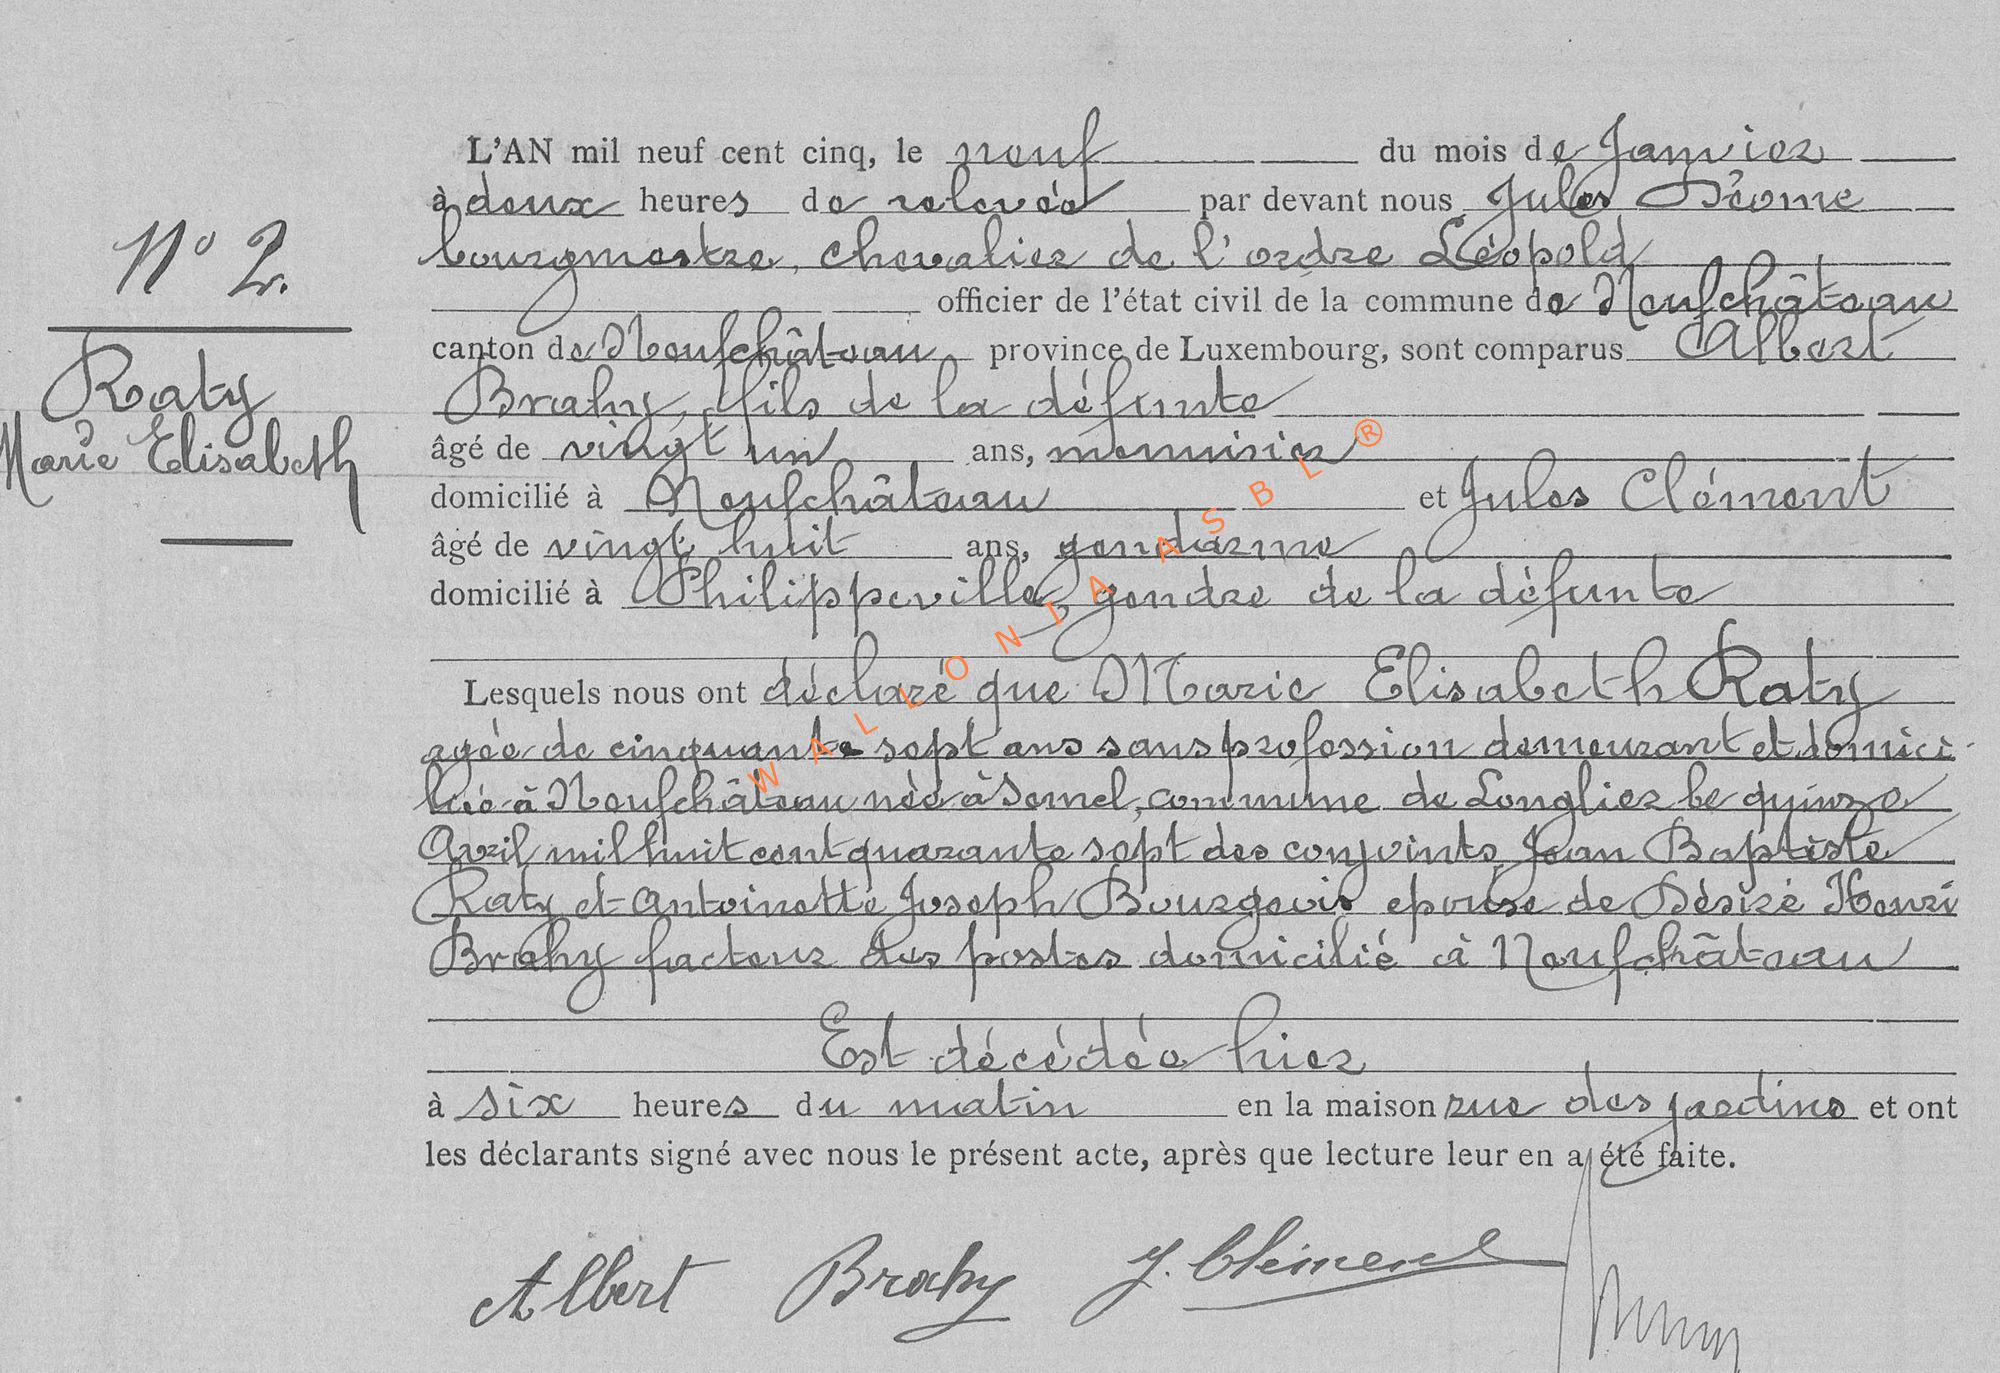 L'AN mil neuf cent cinq, le neuf du mois de Janvier
à deux heures de relevée par devant nous Jules
bourgmestre, chevalier de l'ordre Léopold
officier de l'état civil de la commune de Neufchâteau
canton de Neufchâteau province de Luxembourg, sont comparus Albert
Brahy, fils de la défunte
âgé de vingt un ans, menuisier
domicilié à Neufchâteau et Jules Clément
âgé de vingt huit ans, gendarme
domicilié à Philippeville, gendre de la défunte
N° 2.
Raty
Marie Elisabeth
Lesquels nous ont déclaré que Marie Elisabeth Raty
agée de cinquante sept ans sans profession demeurant et domici
liée à Neufchâteau née à Semel, commune de Longlier le quinze
Avril mil huit cent quarante sept des conjoints Jean Baptiste
Raty et Antoinette Joseph Bourgeois epouse de Désiré Henri
Brahy facteur des postes domicilié à Neufchâteau
Est décédée hier
à six heures du matin en la maison rue des jardins et ont
les déclarants signé avec nous le présent acte, après que lecture leur en a été faite.
Albert Brahy J. Clément
WALLONIA ASBL ®